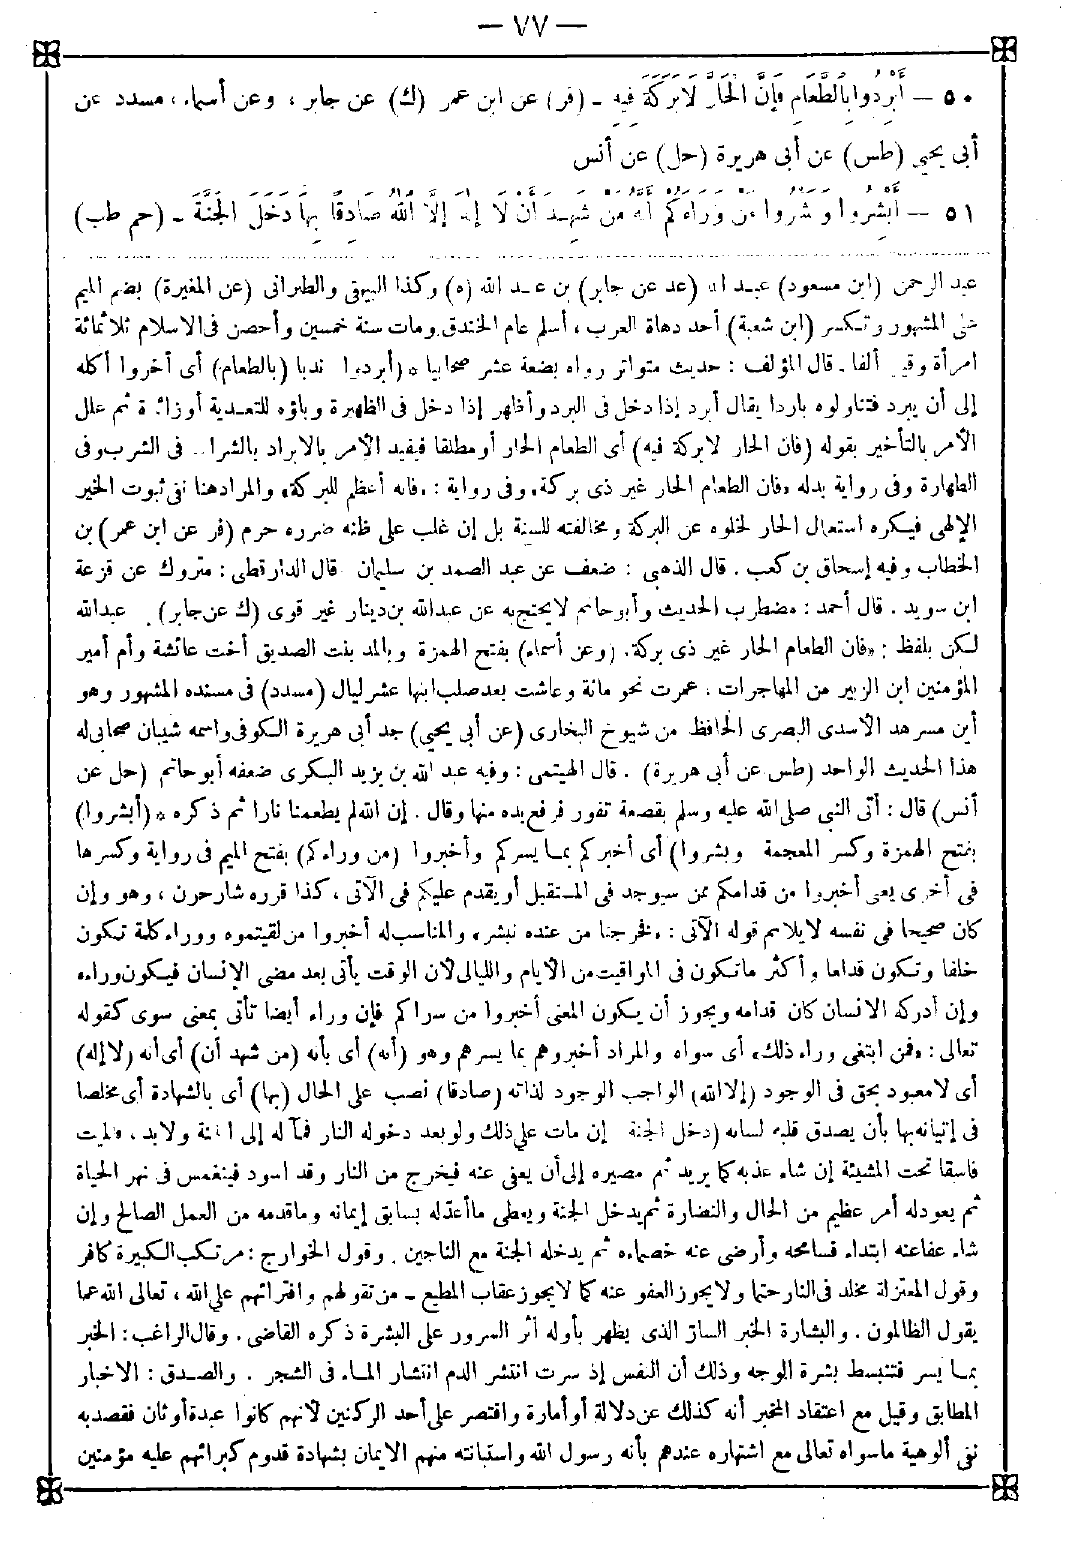 — ٧٧ —
٥٠ — أَبْرِدُوا بِالطَّعَامِ فَإِنَّ الْحَارَّ لَا بَرَكَةَ فِيهِ - (فر) عن ابن عمر (ك) عن جابر ، وعن أسماء ، مسدد عن
أبى يحيى (طس) عن أبى هريرة (حل) عن أنس
٥١ — أَبْشِرُوا وَبَشِّرُوا مَنْ وَرَاءَكُمْ أَنَّهُ مَنْ شَهِدَ أَنْ لَا إِلٰهَ إِلَّا اللهُ صَادِقًا بِهَا دَخَلَ الْجَنَّةَ - (حم طب)
عبد الرحمن (ابن مسعود) عبد الله (عد عن جابر) بن عبد الله (ه) وكذا البيهقى والطبرانى (عن المغيرة) بضم الميم
على المشهور وتكسر (ابن شعبة) أحد دهاة العرب ، أسلم عام الخندق ومات سنة خمسين وأحصن فى الاسلام ثلاثمائة
امرأة وقيل ألفا . قال المؤلف : حديث متواتر رواه بضعة عشر صحابيا * (أبردوا) ندبا (بالطعام) أى أخروا أكله
إلى أن يبرد فتناولوه باردا يقال أبرد إذا دخل فى البرد وأظهر إذا دخل فى الظهيرة وباؤه للتعدية أو زائدة ثم علل
الأمر بالتأخير بقوله (فان الحار لابركة فيه) أى الطعام الحار أو مطلقا فيفيد الأمر بالابراد بالشراب فى الشرب وفى
الطهارة وفى رواية بدله «فان الطعام الحار غير ذى بركة» وفى رواية : «فانه أعظم للبركة» والمراد هنا نفى ثبوت الخير
الإلهى فيكره استعمال الحار لخلوه عن البركة ومخالفته للسنة بل إن غلب على ظنه ضرره حرم (فر عن ابن عمر) بن
الخطاب وفيه إسحاق بن كعب . قال الذهبى : ضعف عن عبد الصمد بن سليمان قال الدارقطى : متروك عن قزعة
ابن سويد . قال أحمد : مضطرب الحديث وأبو حاتم لايحتج به عن عبدالله بن دينار غير قوى (ك عن جابر) . عبدالله
لكن بلفظ : «فان الطعام الحار غير ذى بركة» (وعن أسماء) بفتح الهمزة وبالمد بنت الصديق أخت عائشة وأم أمير
المؤمنين ابن الزبير من المهاجرات ، عمرت نحو مائة وعاشت بعد صلب ابنها عشر ليال (مسدد) فى مسنده المشهور وهو
أبن مسرهد الأسدى البصرى الحافظ من شيوخ البخارى (عن أبى يحيى) جد أبى هريرة الكوفى واسمه شيبان صحابى له
هذا الحديث الواحد (طس عن أبى هريرة) . قال الهيتمى : وفيه عبد الله بن يزيد البكرى ضعفه أبو حاتم (حل عن
أنس) قال : أتى النبى صلى الله عليه وسلم بقصعة تفور فرفع يده منها وقال . إن الله لم يطعمنا نارا ثم ذكره * (أبشروا)
بفتح الهمزة وكسر المعجمة (وبشروا) أى أخبركم بما يسركم وأخبروا (من وراءكم) بفتح الميم فى رواية وكسرها
فى أخرى يعى أخبروا من قدامكم ممن سيوجد فى المستقبل أو يقدم عليكم فى الآتى ، كذا قرره شارحون ، وهو وإن
كان صحيحا فى نفسه لايلائم قوله الآتى : «فخرجنا من عنده نبشر» والمناسب له أخبروا من لقيتموه ووراء كلمة تكون
خلفا وتكون قداما وأكثر ماتكون فى المواقيت من الأيام والليالى لأن الوقت يأتى بعد مضى الإنسان فيكون وراءه
وإن أدركه الانسان كان قدامه ويجوز أن يكون المعنى أخبروا من سراكم فإن وراء أيضا تأتى بمعنى سوى كقوله
تعالى : «فمن ابتغى وراء ذلك» أى سواه والمراد أخبروهم بما يسرهم وهو (أنه) أى بأنه (من شهد أن) أى أنه (لا إله)
أى لامعبود بحق فى الوجود (إلا الله) الواجب الوجود لذاته (صادقا) نصب على الحال (بها) أى بالشهادة أى مخلصا
فى إتيانه بها بأن يصدق قلبه لسانه (دخل الجنة) إن مات على ذلك ولو بعد دخوله النار فمآله إلى الجنة ولابد ، فالميت
فاسقا تحت المشيئة إن شاء عذبه كما يريد ثم مصيره إلى أن يعفى عنه فيخرج من النار وقد اسود فينغمس فى نهر الحياة
ثم يعود له أمر عظيم من الحال والنضارة ثم يدخل الجنة ويعطى ماأعد له بسابق إيمانه وماقدمه من العمل الصالح وإن
شاء عفا عنه ابتداء فسامحه وأرضى عنه خصماءه ثم يدخله الجنة مع الناجين . وقول الخوارج : مرتكب الكبيرة كافر
وقول المعتزلة مخلد فى النار حتما ولا يجوز العفو عنه كما لا يجوز عقاب المطيع - من تقولهم وافترائهم على الله ، تعالى الله عما
يقول الظالمون . والبشارة الخبر السار الذى يظهر بأوله أثر السرور على البشرة ذكره القاضى . وقال الراغب : الخبر
بما يسر فتنبسط بشرة الوجه وذلك أن النفس إذ سرت انتشر الدم انتشار الماء فى الشجر . والصدق : الاخبار
المطابق وقيل مع اعتقاد المخبر أنه كذلك عن دلالة أو أمارة واقتصر على أحد الركنين لأنهم كانوا عبدة أوثان فقصد به
نفى ألوهية ماسواه تعالى مع اشتهاره عندهم بأنه رسول الله واستبانته منهم الايمان بشهادة قدوم كبرائهم عليه مؤمنين